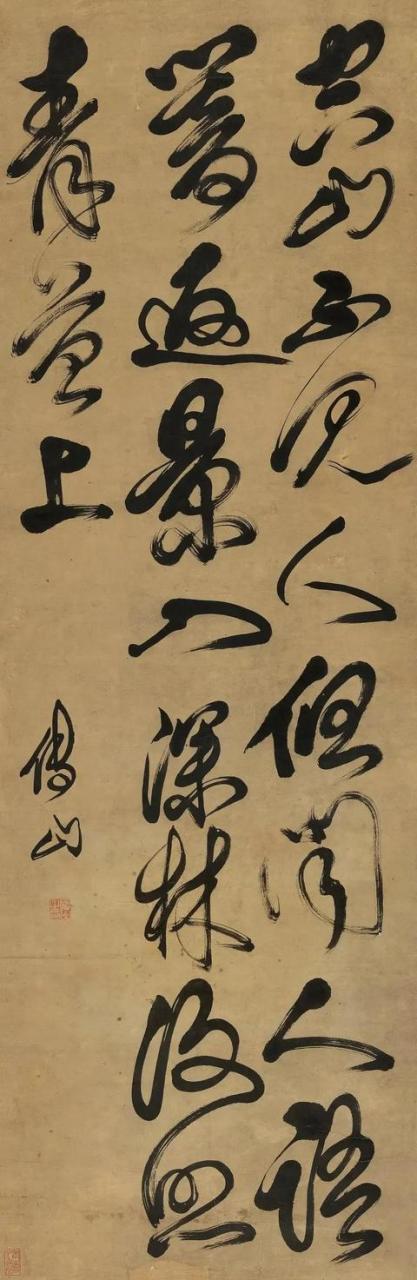 空山不見人但聞人語
響返景入深林復照
青苔上
傅山